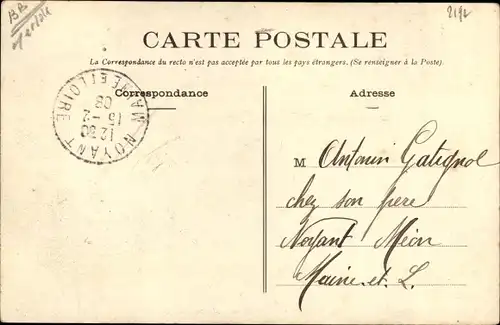 2192
CARTE POSTALE
La Correspondance du recto n'est pas acceptée par tous les pays étrangers. (Se renseigner à la Poste).
Correspondance
Adresse
NOYANT
MAINE ET LOIRE
12 30
15 - 2
08
M Antonin Gatignol
chez son père
Noyant Méon
Maine et L.